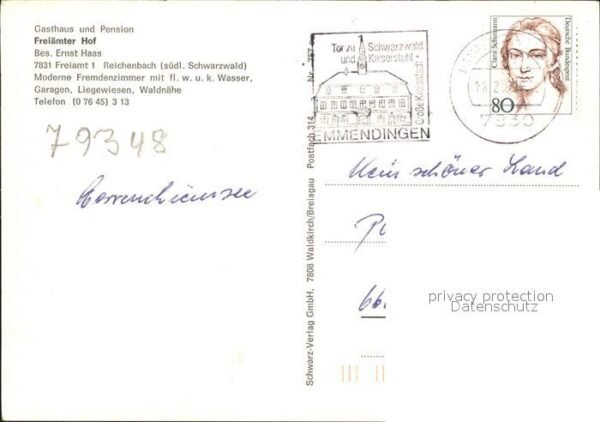 Gasthaus und Pension
Freiämter Hof
Bes. Ernst Haas
7831 Freiamt 1 Reichenbach (südl. Schwarzwald)
Moderne Fremdenzimmer mit fl. w. u. k. Wasser,
Garagen, Liegewiesen, Waldnähe
Telefon (0 76 45) 3 13
79348
Schwarz-Verlag GmbH, 7808 Waldkirch/Breisgau Postfach 314
Tor zu Schwarzwald
und Kaiserstuhl
Große Kreisstadt
EMMENDINGEN
7830
Clara Schumann
Deutsche Bundespost
80
Kein schöner Land
66
privacy protection
Datenschutz